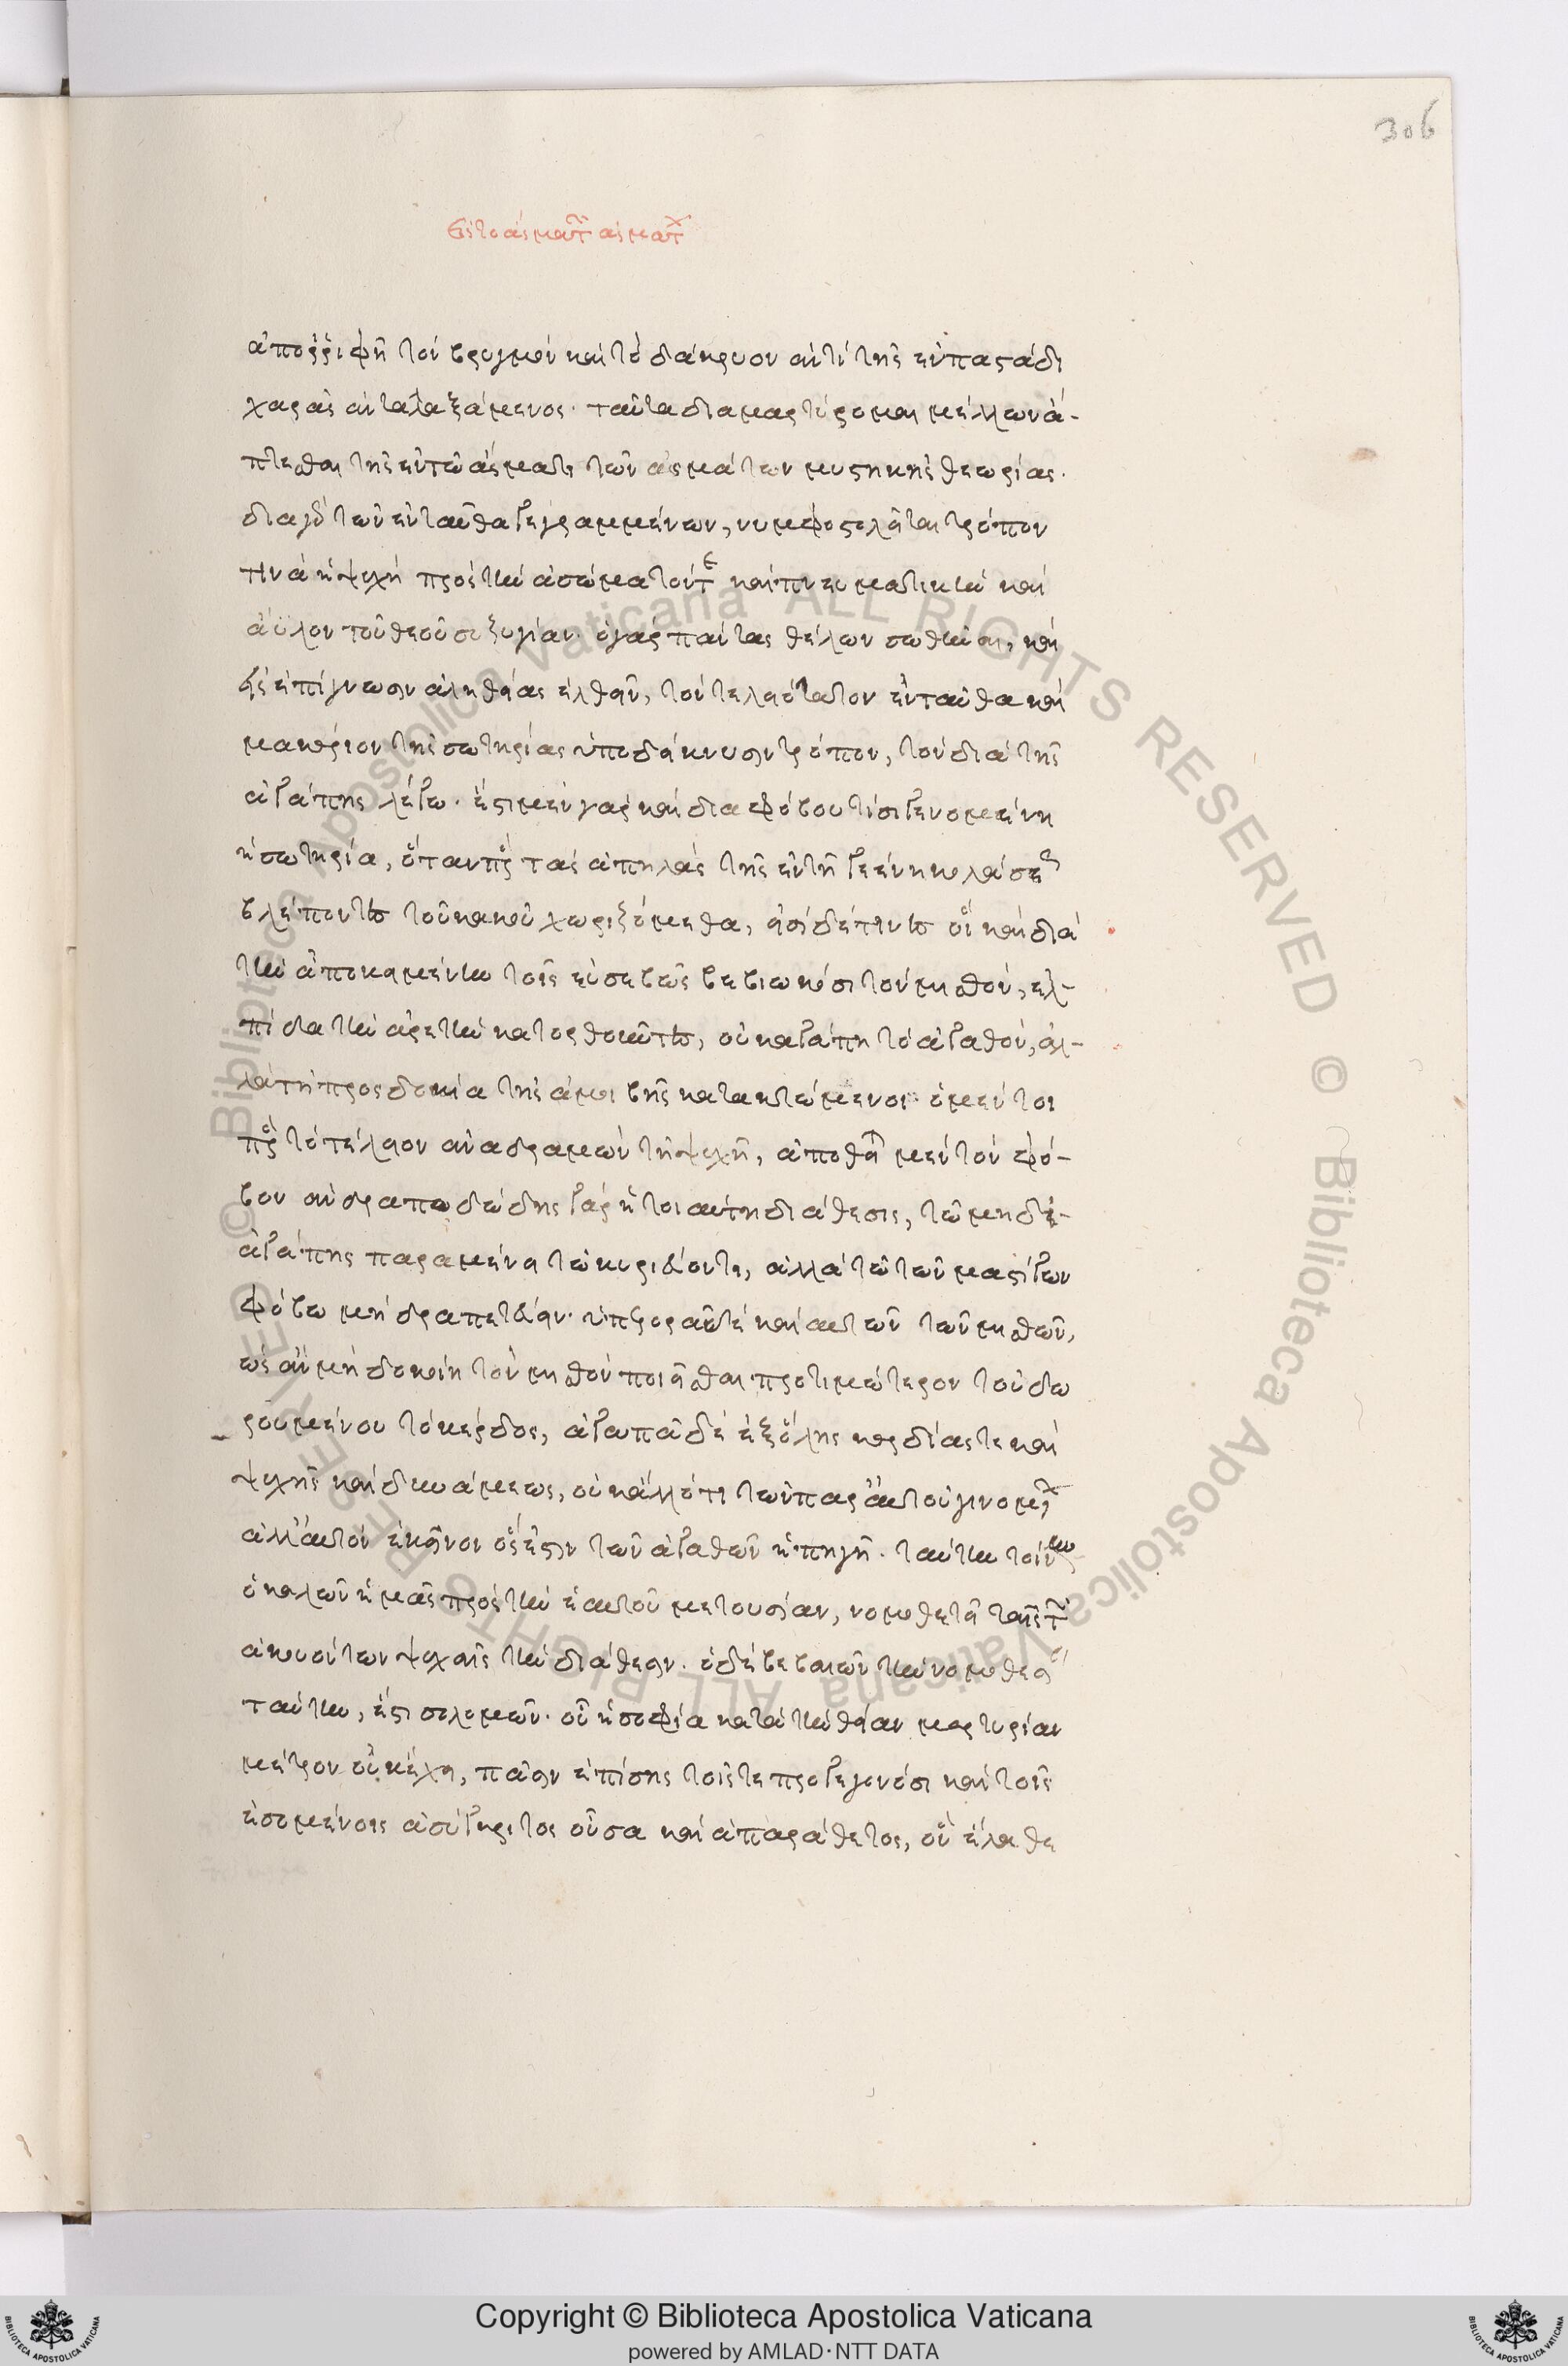 306
εἰς τὸ ἆσμα τῶν ἀσμάτων
ἀπορριφῇ τὸν βρυγμὸν καὶ τὸ δάκρυον ἀντὶ τῆς ἐν παστάδι
χαρᾶς ἀνταλλαξάμενος. ταῦτα διαμαρτύρομαι μέλλων ἅ-
πτεσθαι τῆς ἐν τῷ ἄσματι τῶν ἀσμάτων μυστικῆς θεωρίας.
διὰ γὰρ τῶν ἐνταῦθα γεγραμμένων, νυμφοστολεῖται τρόπον
τινὰ ἡ ψυχὴ πρὸς τὴν ἀσώματόν τε καὶ πνευματικὴν καὶ
ἄϋλον τοῦ θεοῦ συζυγίαν. ὁ γὰρ πάντας θέλων σωθῆναι, καὶ
εἰς ἐπίγνωσιν ἀληθείας ἐλθεῖν, τὸν τελειότατον ἐνταῦθα καὶ
μακάριον τῆς σωτηρίας ὑποδείκνυσι τρόπον, τὸν διὰ τῆς
ἀγάπης λέγω. ἔστι μὲν γὰρ καὶ διὰ φόβου τισὶ γενομένη
ἡ σωτηρία, ὅταν πρὸς τὰς ἀπειλὰς τῆς ἐν τῇ γεέννῃ κολάσεως
βλέποντες τοῦ κακοῦ χωριζόμεθα, εἰσὶ δέ τινες οἳ καὶ διὰ
τὴν ἀποκειμένην τοῖς εὐσεβῶς βεβιωκόσι τὸν μισθὸν, ἐλ-
πίδα τὴν ἀρετὴν κατορθοῦντες, οὐκ ἀγάπῃ τὸ ἀγαθὸν, ἀλ-
λὰ τῇ προσδοκίᾳ τῆς ἀμοιβῆς κατακτώμενοι. ὁ μέντοι
πρὸς τὸ τέλειον ἀναδραμὼν τῇ ψυχῇ, ἀπωθεῖται μὲν τὸν φό-
βον ἀνδραποδώδης γὰρ ἡ τοιαύτη διάθεσις, τῷ μὴ δι'
ἀγάπης παραμένειν τῷ κυριεύοντι, ἀλλὰ τῷ τῶν μαστίγων
φόβῳ μὴ δραπετεύειν. ὑπερορᾷ τὲ καὶ αὐτῶν τῶν μισθῶν,
ὡς ἂν μὴ δοκοίη τὸν μισθὸν ποιεῖσθαι προτιμώτερον τοῦ δω
ρουμένου τὸ κέρδος, ἀγαπᾷ δὲ ἐξ ὅλης καρδίας τε καὶ
ψυχῆς καὶ δυνάμεως, οὐκ ἄλλό τι τῶν παρ' αὐτοῦ γινομένων
ἀλλ' αὐτὸν ἐκεῖνον ὅς ἐστι τῶν ἀγαθῶν ἡ πηγή. ταύτην τοίνυν
ὁ καλῶν ἡμᾶς πρὸς τὴν ἑαυτοῦ μετουσίαν, νομοθετεῖ ταῖς τῶν
ἀκουόντων ψυχαῖς τὴν διάθεσιν. ὁ δὲ βεβαιῶν τὴν νομοθεσίαν
ταύτην, ἔστι σολομῶν. οὗ ἡ σοφία κατὰ τὴν θείαν μαρτυρίαν
μέτρον οὐκ ἔχει, πᾶσιν ἐπίσης τοῖς τε προγεγονόσι καὶ τοῖς
ἐσομένοις ἀσύγκριτος οὖσα καὶ ἀπαράθετος, ὃν ἔλαθε
Copyright © Biblioteca Apostolica Vaticana
powered by AMLAD·NTT DATA
© Biblioteca Apostolica Vaticana ALL RIGHTS RESERVED © Biblioteca Apostolica Vaticana ALL RIGHTS RESERVED
BIBLIOTECA APOSTOLICA VATICANA
BIBLIOTECA APOSTOLICA VATICANA